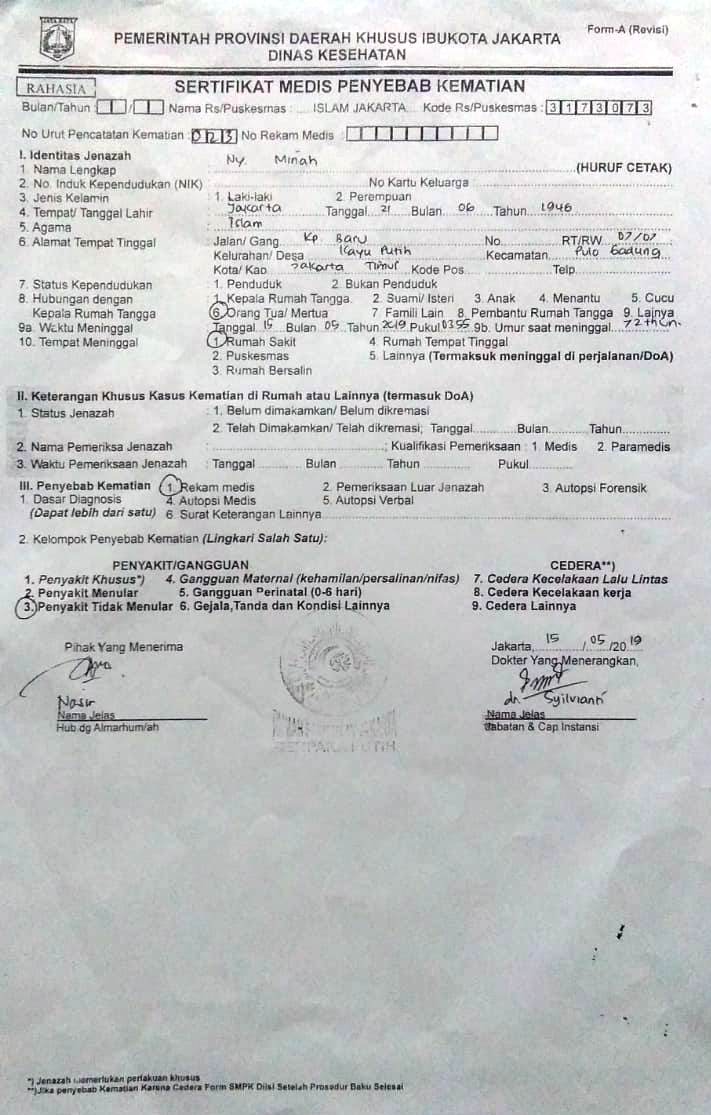 JAYA RAYA
PEMERINTAH PROVINSI DAERAH KHUSUS IBUKOTA JAKARTA
Form-A (Revisi)
DINAS KESEHATAN
RAHASIA
SERTIFIKAT MEDIS PENYEBAB KEMATIAN
Bulan/Tahun : / Nama Rs/Puskesmas : .... ISLAM JAKARTA.... Kode Rs/Puskesmas : 3 1 7 3 0 7 3
No Urut Pencatatan Kematian : 0 1 2 3 No Rekam Medis :
I. Identitas Jenazah
1. Nama Lengkap : Ny. Minah (HURUF CETAK)
2. No. Induk Kependudukan (NIK) : No Kartu Keluarga :
3. Jenis Kelamin : 1. Laki-laki 2. Perempuan
4. Tempat/ Tanggal Lahir : Jakarta Tanggal 21 Bulan 06 Tahun 1946
5. Agama : Islam
6. Alamat Tempat Tinggal : Jalan/ Gang Kp. Baru No. RT/RW 07/07
Kelurahan/ Desa Kayu Putih Kecamatan Pulo Gadung
Kota/ Kab Jakarta Timur Kode Pos Telp
7. Status Kependudukan : 1. Penduduk 2. Bukan Penduduk
8. Hubungan dengan : 1. Kepala Rumah Tangga. 2. Suami/ Isteri 3. Anak 4. Menantu 5. Cucu
Kepala Rumah Tangga 6. Orang Tua/ Mertua 7 Famili Lain 8. Pembantu Rumah Tangga 9. Lainya
9a. Waktu Meninggal : Tanggal 15 Bulan 05 Tahun 2019 Pukul 0355 9b. Umur saat meninggal 72 thn.
10. Tempat Meninggal : 1. Rumah Sakit 4. Rumah Tempat Tinggal
2. Puskesmas 5. Lainnya (Termaksuk meninggal di perjalanan/DoA)
3. Rumah Bersalin
II. Keterangan Khusus Kasus Kematian di Rumah atau Lainnya (termasuk DoA)
1. Status Jenazah : 1. Belum dimakamkan/ Belum dikremasi
2. Telah Dimakamkan/ Telah dikremasi; Tanggal Bulan Tahun
2. Nama Pemeriksa Jenazah : ; Kualifikasi Pemeriksaan : 1 Medis 2. Paramedis
3. Waktu Pemeriksaan Jenazah : Tanggal Bulan Tahun Pukul
III. Penyebab Kematian 1. Rekam medis 2. Pemeriksaan Luar Jenazah 3. Autopsi Forensik
1. Dasar Diagnosis 4. Autopsi Medis 5. Autopsi Verbal
(Dapat lebih dari satu) 6. Surat Keterangan Lainnya
2. Kelompok Penyebab Kematian (Lingkari Salah Satu):
PENYAKIT/GANGGUAN CEDERA**)
1. Penyakit Khusus*) 4. Gangguan Maternal (kehamilan/persalinan/nifas) 7. Cedera Kecelakaan Lalu Lintas
2. Penyakit Menular 5. Gangguan Perinatal (0-6 hari) 8. Cedera Kecelakaan kerja
3. Penyakit Tidak Menular 6. Gejala,Tanda dan Kondisi Lainnya 9. Cedera Lainnya
Pihak Yang Menerima
Jakarta, 15 / 05 /20 19
Dokter Yang Menerangkan,
Nasir
dr Syilvianti
Nama Jelas
Hub dg Almarhum/ah
Nama Jelas
Jabatan & Cap Instansi
CEMPAKA PUTIH
*) Jenazah Memerlukan perlakuan khusus
**)Jika penyebab Kematian Karena Cedera Form SMPK Diisi Setelah Prosedur Baku Selesai